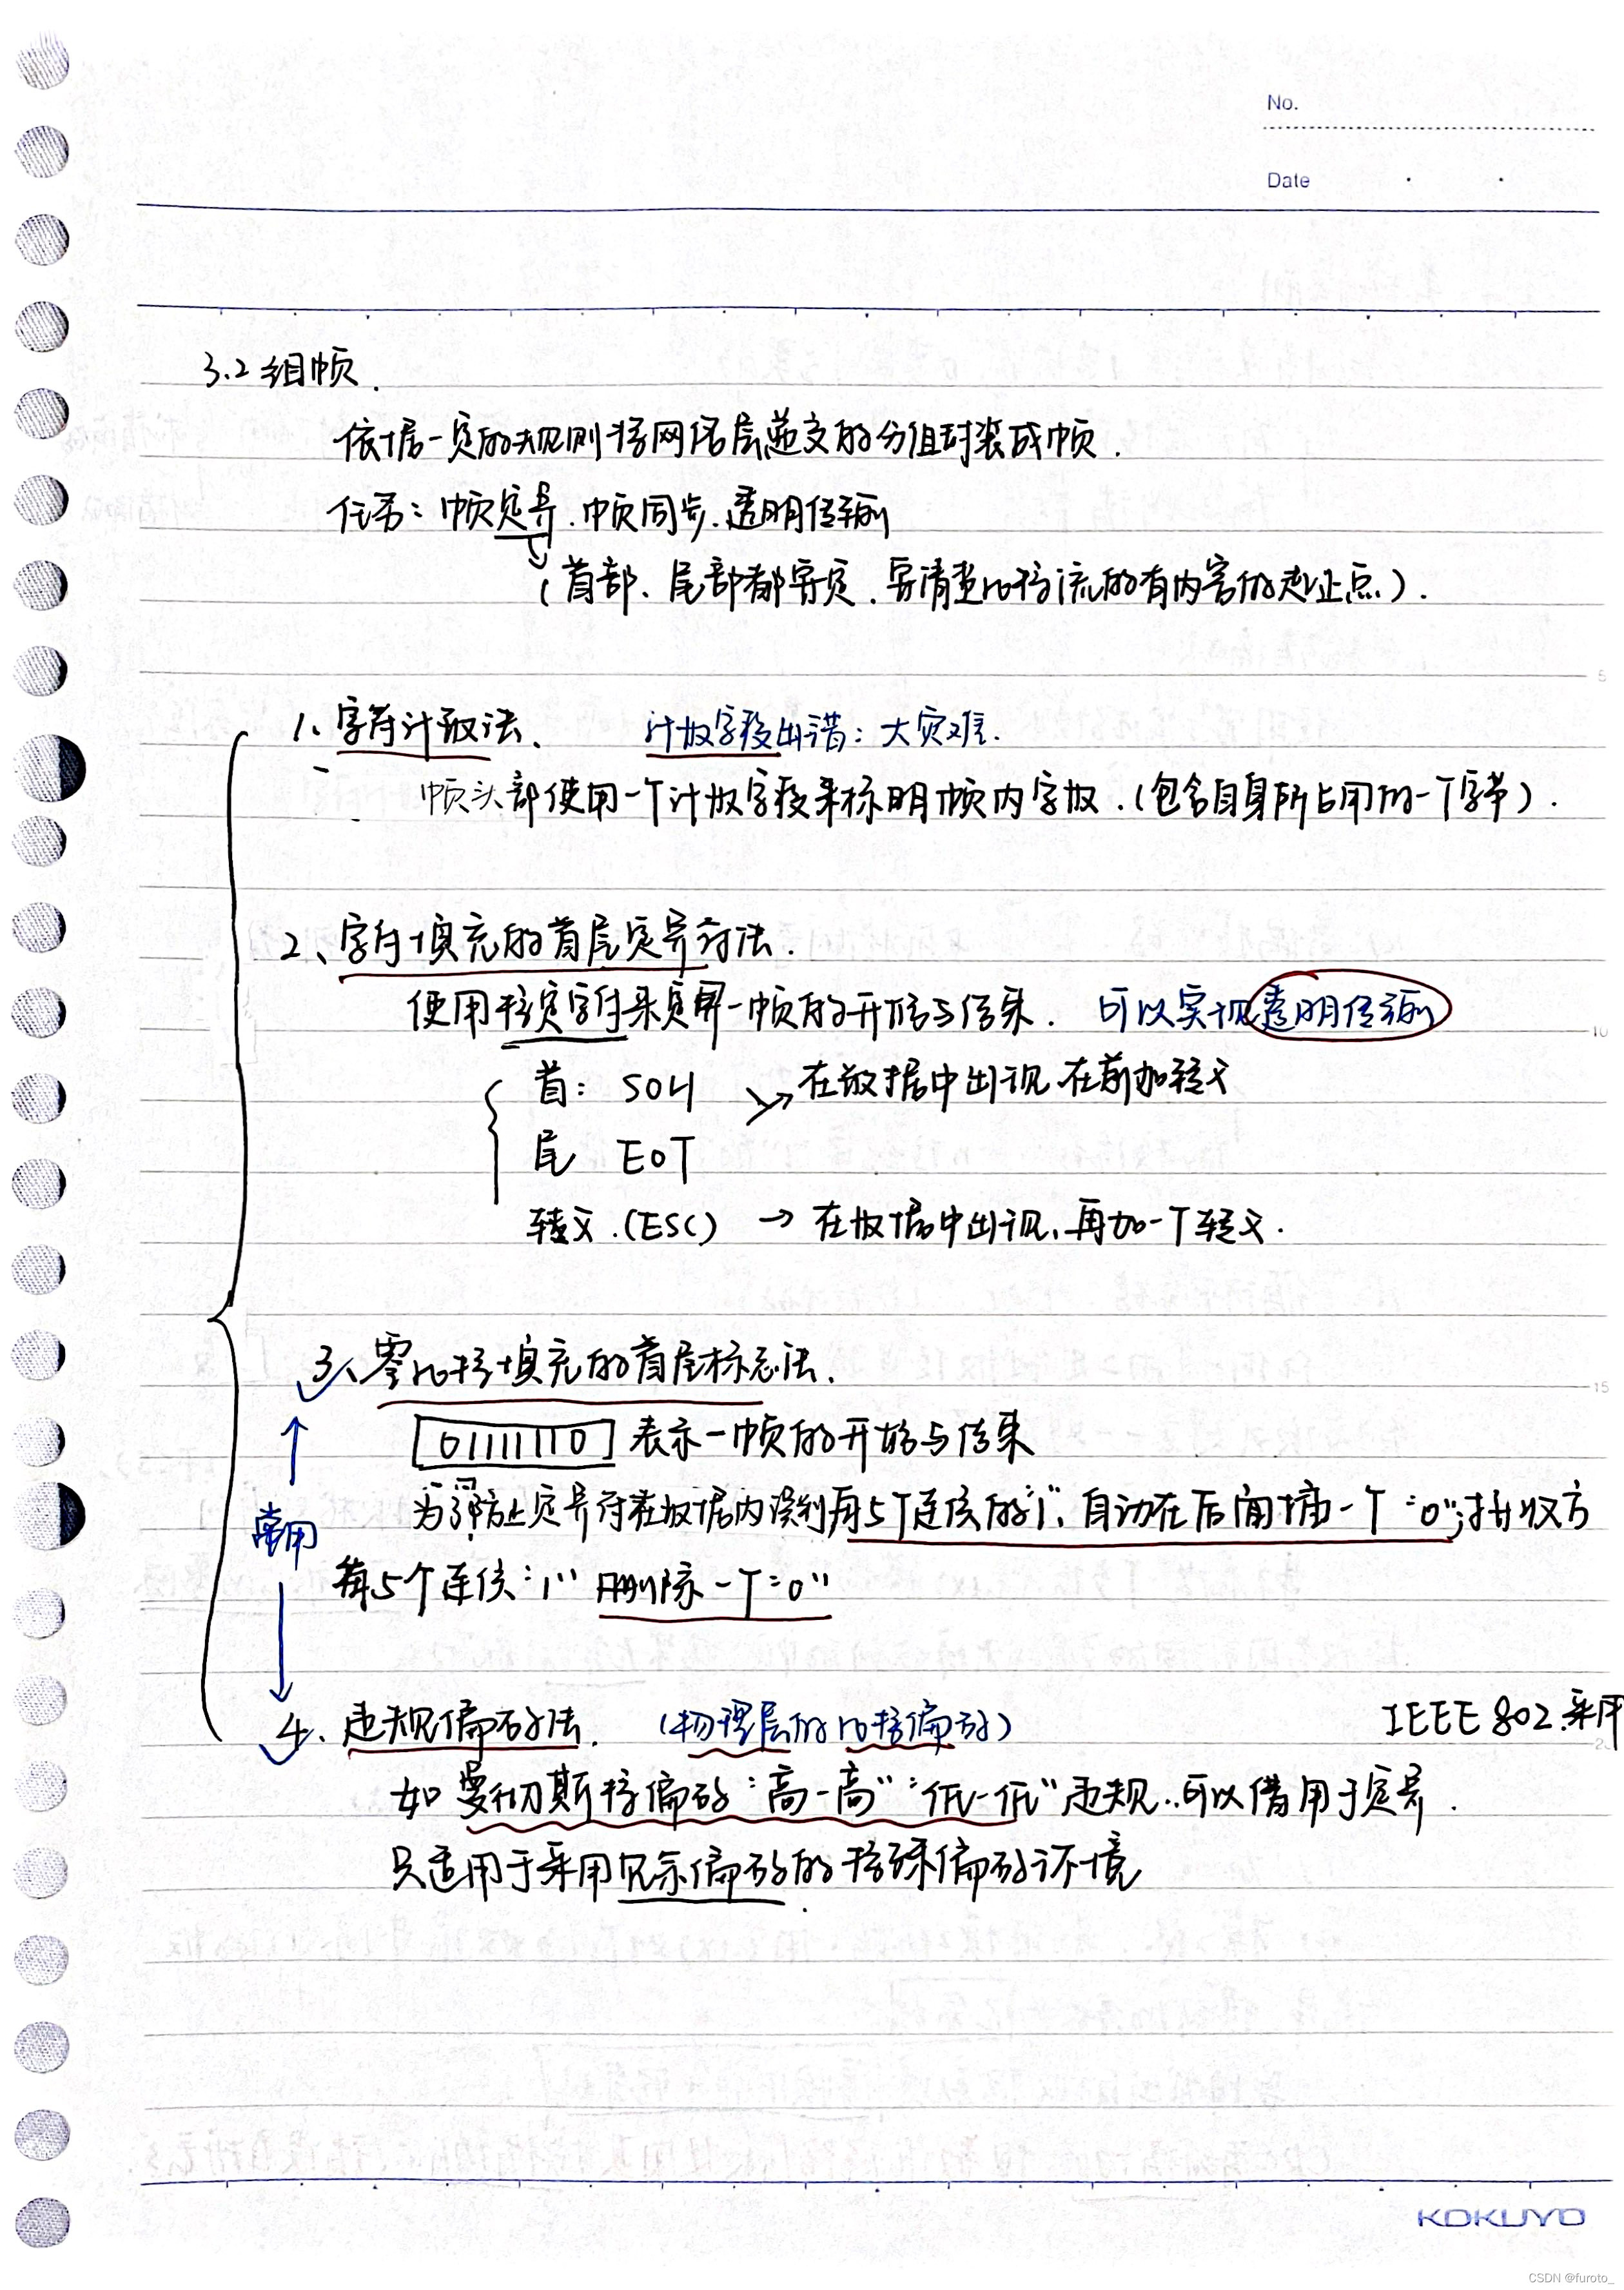 No.
Date
3.2 组帧.
依据一定的规则将网络层递交的分组封装成帧.
任务: 帧定界.帧同步.透明传输
(首部、尾部都要定.要清楚比特流的有内容的起止点).
1、字符计数法、 计数字段出错: 大灾难.
帧头部使用一个计数字段来标明帧内字数.(包含自身所占用的一个字节).
2、字符填充的首尾定界符法.
使用特定字符来定界一帧的开始与结束. 可以实现透明传输
首: SOH 在数据中出现在前加转义
尾 EOT
转义.(ESC) → 在数据中出现、再加一个转义.
3、零比特填充的首尾标志法.
01111110 表示一帧的开始与结束
为防止定界符在数据内误判每5个连续的"1"、自动在后面插一个"0";接收方
常用
每5个连续"1" 删除一个"0"
4、违规编码法. (物理层的比特编码) IEEE 802.采用
如曼彻斯特编码"高-高" "低-低"违规..可以借用于定界.
只适用于采用冗余编码的特殊编码环境
KOKUYO
CSDN @furoto_